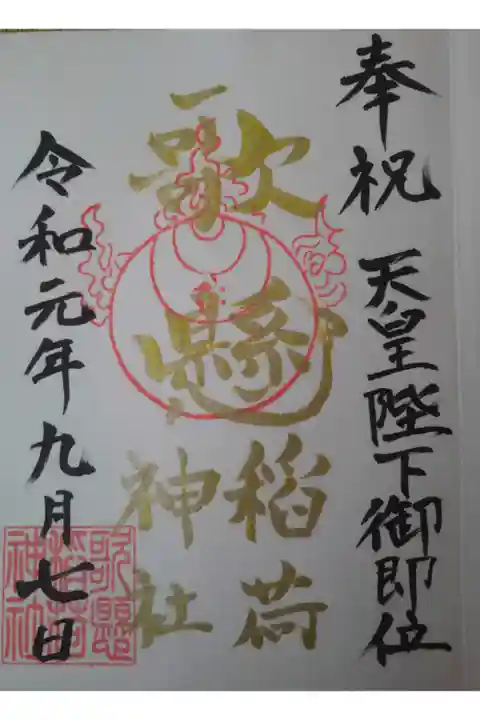 奉祝 天皇陛下御即位
歌懸
稲荷
神社
令和元年九月七日
歌懸
稲荷
神社